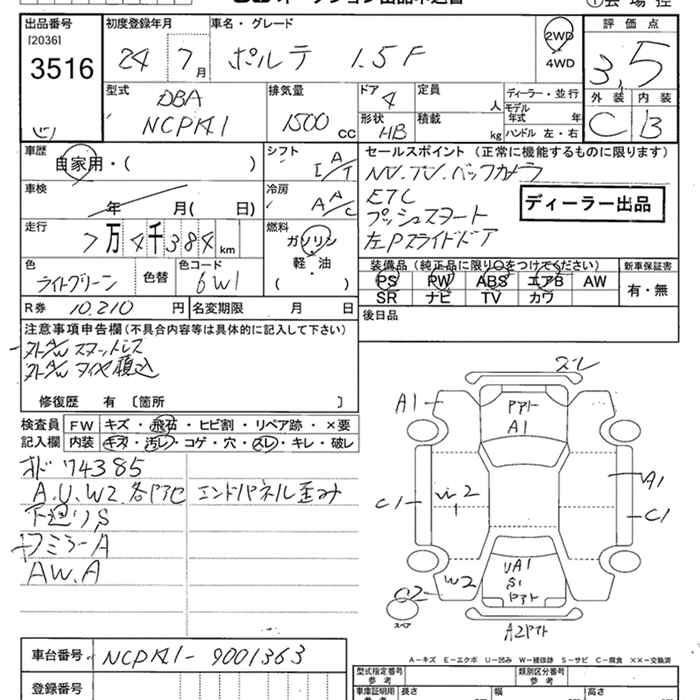 出品番号
[2036]
3516
初度登録年月
24 7月
車名・グレード
ポルテ 1.5F
2WD
4WD
評価点
3.5
外装 内装
C B
型式
DBA
NCP141
排気量
1500 cc
ドア
4
形状
HB
定員
人
積載
kg
ディーラー・並行
モデル
年式 年
ハンドル 左・右
車歴
自家用・( )
シフト
I A/T
セールスポイント (正常に機能するものに限ります)
NV.TV.バックカメラ
ETC
プッシュスタート
左Pスライドドア
ディーラー出品
車検
年 月( 日)
冷房
A A/C
走行
7万4千384km
燃料
ガソリン
軽・油
( )
色
ライトグリーン
色替
色コード
6W1
装備品 (純正品に限り〇をつけてください)
PS PW ABS エアB AW
SR ナビ TV カワ
新車保証書
有・無
R券 10,210 円
名変期限 月 日
後日品
注意事項申告欄 (不具合内容等は具体的に記入して下さい)
外A/W スタットレス
外A/W タイヤ積込
修復歴 有〔箇所 〕
検査員
記入欄
FW キズ・飛石・ヒビ割・リペア跡・×要
内装 キズ・汚レ・コゲ・穴・スレ・キレ・破レ
オド 74385
A.U.W2 各Pアト エンドパネル歪み
下廻りS
フミラーA
AW.A
ズレ
A1
Pアト
A1
A1
C1
W2
C1
W2
C2
スペア
UA1
S1
Pアト
A2Pアト
車台番号 NCP141-9001363
登録番号
A-キズ E-エクボ U-凹み W-補修跡 S-サビ C-腐食 ××-交換済
型式指定番号
参考
類別区分番号
参考
車庫証明用
長さ 幅 高さ